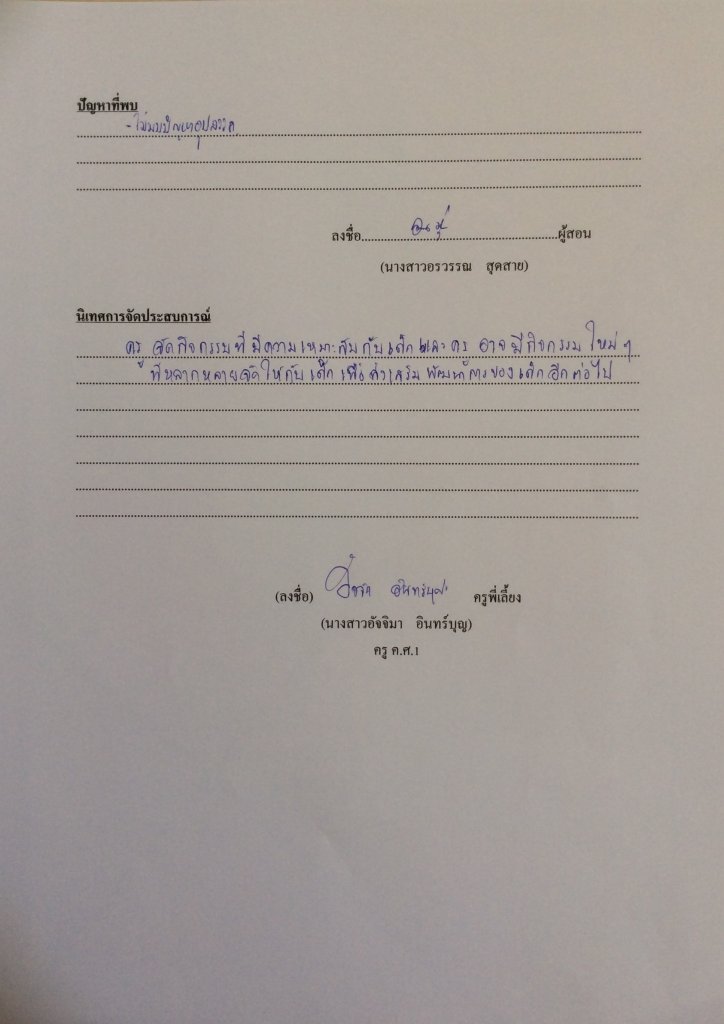 ปัญหาที่พบ
- ไม่พบปัญหาอุปสรรค
ลงชื่อ..........................................................ผู้สอน
(นางสาวอรวรรณ สุดสาย)
นิเทศการจัดประสบการณ์
ครู จัดกิจกรรมที่ มีความเหมาะสมกับเด็ก และ ครู อาจ มีกิจกรรม ใหม่ ๆ
ที่หลากหลายจัดให้กับ เด็ก เพื่อส่งเสริม พัฒนาการของเด็กอีกต่อไป
(ลงชื่อ) อินทร์บุญ ครูพี่เลี้ยง
(นางสาวอัจจิมา อินทร์บุญ)
ครู ค.ศ.1